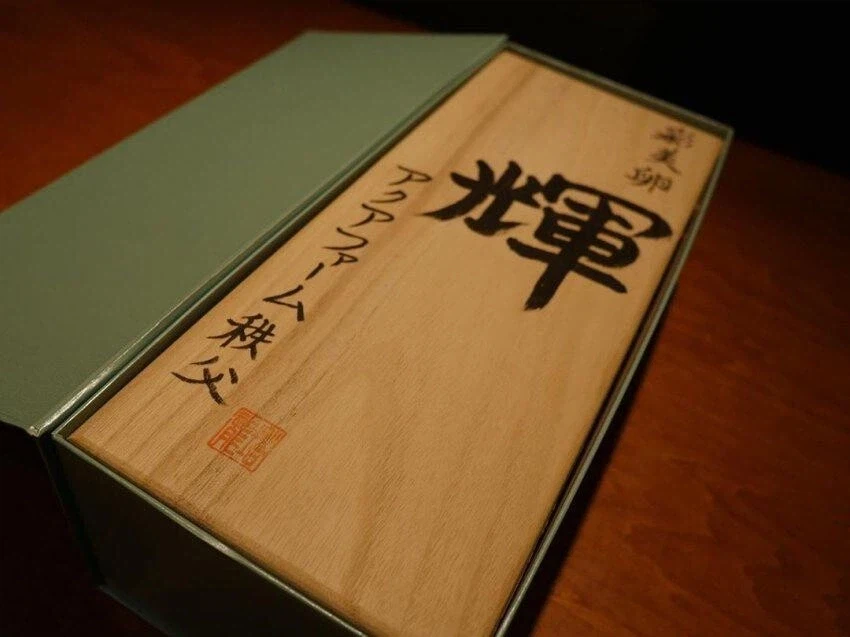 彩美卵
輝
アクアファーム秩父